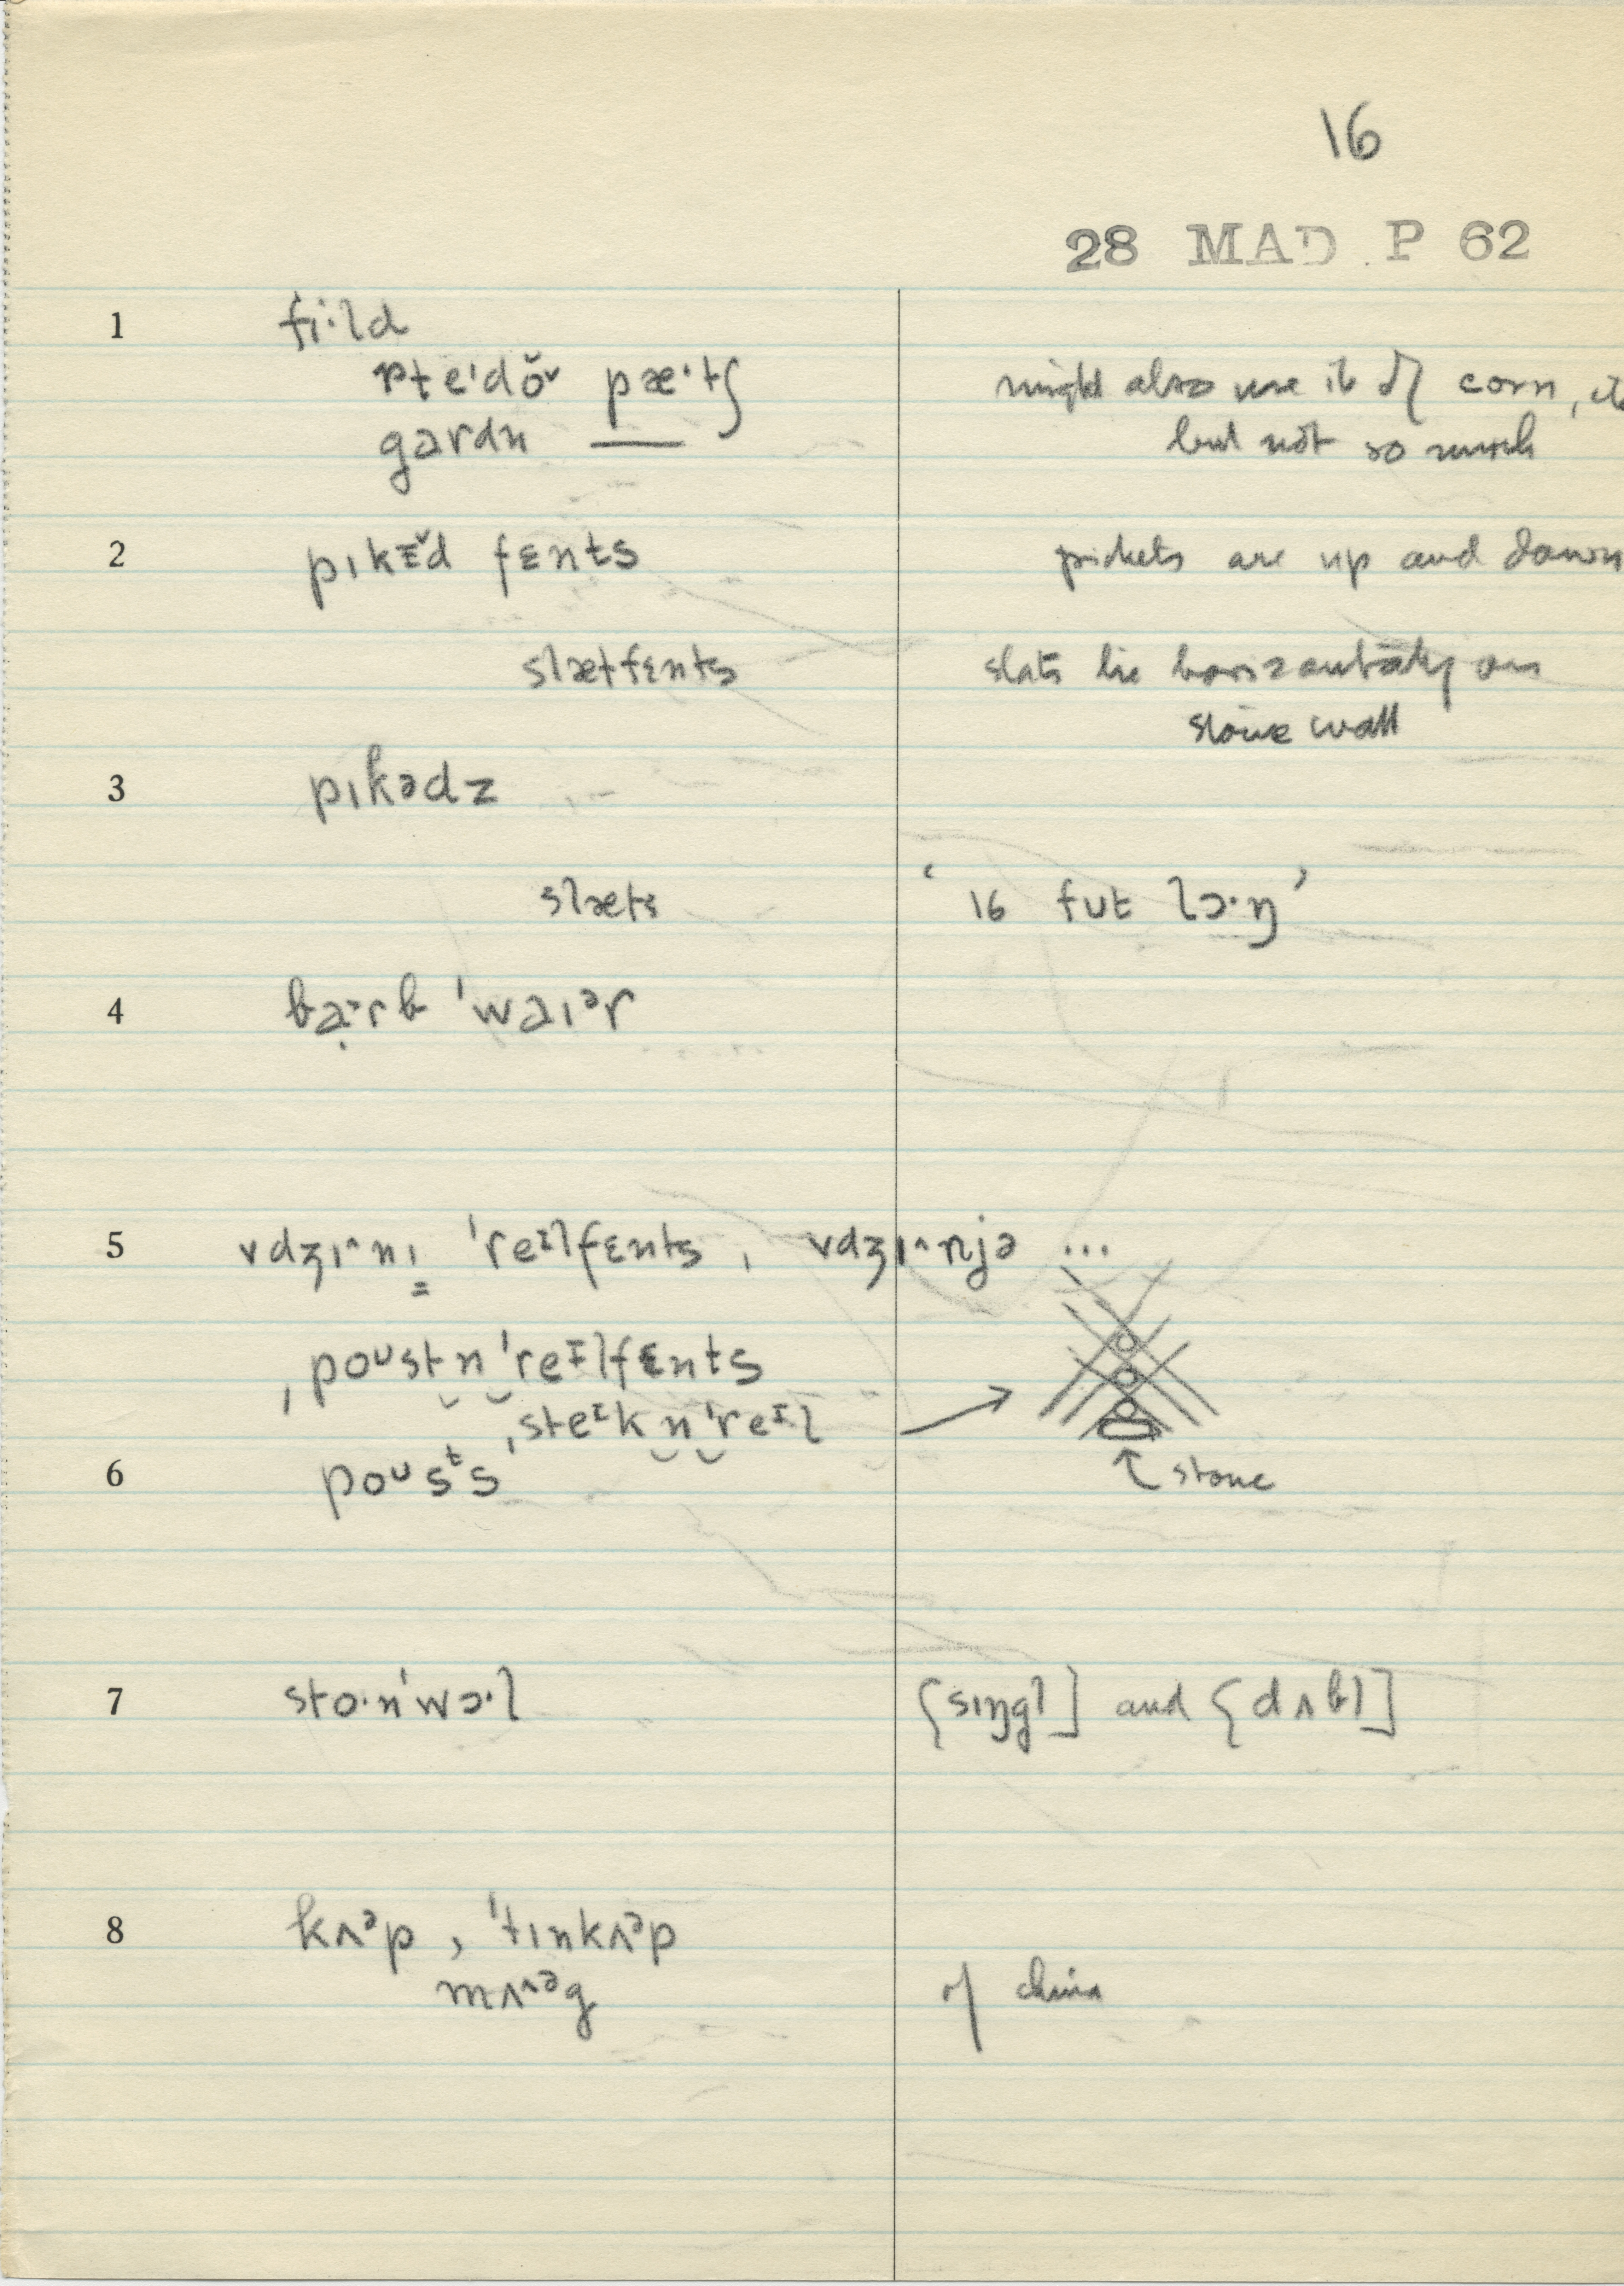 16
28 MAD P 62
1 fi·ld
pte'də̆v pæ·tʃ might also use it of corn, etc
gardn ___ but not so much
2 pɪkɪ̆d fɛnts pickets are up and down
slætfɛnts slats lie horizontally on
stone wall
3 pɪkədz
slæts ‘16 fut lɔ·ŋ’
4 ba·rb ˈwaɪᵊr
5 vdʒɪ^nɪ ˈreᶦlfɛnts, vdʒɪ^njə ...
ˌpoᵘstn̩ˈreᶦlfɛnts
ˌsteᶦkn̩ˈreᶦl
6 poᵘsᵗs stone
7 sto·nˈwɔ·l [sɪŋgl] and [dʌbl]
8 kʌᵊp, ˈtɪnkʌᵊp
mʌ^ᵊg of china